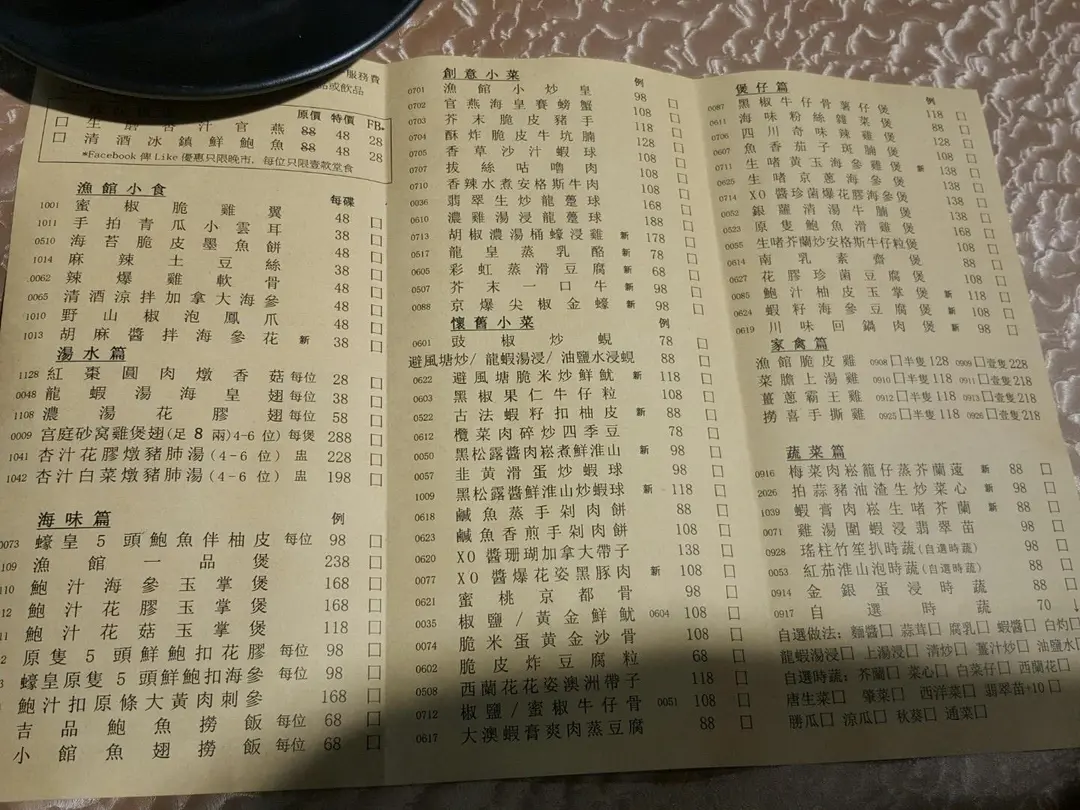 服務費
或飲品
原價 特價 FB*
官燕 88 48 28
清酒冰鎮鮮鮑魚 88 48 28
*Facebook 俾 Like 優惠只限晚市，每位只限壹款堂食
漁館小食 每碟
1001 蜜椒脆雞翼 48 口
1011 手拍青瓜小雲耳 38 口
0510 海苔脆皮墨魚餅 48 口
1014 麻辣土豆絲 38 口
0062 辣爆雞軟骨 48 口
0065 清酒涼拌加拿大海參 48 口
1010 野山椒泡鳳爪 48 口
1013 胡麻醬拌海參花 新 38 口
湯水篇
1128 紅棗圓肉燉香菇 每位 28 口
0048 龍蝦湯海皇翅 每位 38 口
1108 濃湯花膠翅 每位 58 口
0009 宮庭砂窩雞煲翅(足 8 兩)4-6 位) 每煲 288 口
1041 杏汁花膠燉豬肺湯(4-6 位) 盅 228 口
1042 杏汁白菜燉豬肺湯(4-6 位) 盅 198 口
海味篇 例
0073 蠔皇 5 頭鮑魚伴柚皮 每位 98 口
109 漁館一品煲 238 口
110 鮑汁海參玉掌煲 168 口
12 鮑汁花膠玉掌煲 168 口
11 鮑汁花菇玉掌煲 118 口
2 原隻 5 頭鮮鮑扣花膠 每位 98 口
3 蠔皇原隻 5 頭鮮鮑扣海參 每位 98 口
鮑汁扣原條大黃肉刺參 168 口
吉品鮑魚撈飯 每位 68 口
小館魚翅撈飯 每位 68 口
創意小菜 例
0701 漁館小炒皇 98 口
0702 官燕海皇賽螃蟹 108 口
0703 芥末脆皮豬手 118 口
0704 酥炸脆皮牛坑腩 128 口
0705 香草沙汁蝦球 108 口
0707 拔絲咕嚕肉 108 口
0710 香辣水煮安格斯牛肉 108 口
0036 翡翠生炒龍躉球 168 口
0610 濃雞湯浸龍躉球 188 口
0713 胡椒濃湯桶蠔浸雞 新 178 口
0517 龍皇蒸乳酪 新 78 口
0605 彩虹蒸滑豆腐 新 68 口
0507 芥末一口牛 新 98 口
0088 京爆尖椒金蠔 新 98 口
懷舊小菜 例
0601 豉椒炒蜆 78 口
避風塘炒/龍蝦湯浸/油鹽水浸蜆 88 口
0622 避風塘脆米炒鮮魷 新 118 口
0603 黑椒果仁牛仔粒 108 口
0522 古法蝦籽扣柚皮 新 88 口
0612 欖菜肉碎炒四季豆 78 口
0050 黑松露醬肉崧煮鮮淮山 新 98 口
0057 韭黃滑蛋炒蝦球 98 口
1009 黑松露醬鮮淮山炒蝦球 新 118 口
0618 鹹魚蒸手剁肉餅 88 口
0623 鹹魚香煎手剁肉餅 108 口
0620 XO 醬珊瑚加拿大帶子 138 口
0077 XO 醬爆花姿黑豚肉 新 108 口
0621 蜜桃京都骨 98 口
0035 椒鹽/黃金鮮魷 0604 108 口
0074 脆米蛋黃金沙骨 108 口
0602 脆皮炸豆腐粒 68 口
0508 西蘭花花姿澳洲帶子 118 口
0712 椒鹽/蜜椒牛仔骨 0051 108 口
0617 大澳蝦膏爽肉蒸豆腐 88 口
煲仔篇 例
0087 黑椒牛仔骨薯仔煲 118 口
0611 海味粉絲雜菜煲 88 口
0706 四川奇味辣雞煲 128 口
0607 魚香茄子斑腩煲 108 口
0711 生啫黃玉海參雞煲 新 138 口
0625 生啫京蔥海參煲 138 口
0714 XO 醬珍菌爆花膠海參煲 138 口
0052 銀蘿清湯牛腩煲 168 口
0523 原隻鮑魚滑雞煲 168 口
0055 生啫芥蘭炒安格斯牛仔粒煲 108 口
0614 南乳素齋煲 88 口
0627 花膠珍菌豆腐煲 108 口
0085 鮑汁柚皮玉掌煲 新 118 口
0624 蝦籽海參豆腐煲 新 108 口
0619 川味回鍋肉煲 新 98 口
家禽篇
漁館脆皮雞 0908 口半隻 128 0909 口壹隻 228
菜膽上湯雞 0910 口半隻 118 0911 口壹隻 218
薑蔥霸王雞 0912 口半隻 118 0913 口壹隻 218
撈喜手撕雞 0925 口半隻 118 0926 口壹隻 218
蔬菜篇
0916 梅菜肉崧籠仔蒸芥蘭薳 新 88 口
2026 拍蒜豬油渣生炒菜心 新 98 口
1039 蝦膏肉崧生啫芥蘭 新 88 口
0071 雞湯圍蝦浸翡翠苗 98 口
0928 瑤柱竹笙扒時蔬(自選時蔬) 98 口
0053 紅茄淮山泡時蔬(自選時蔬) 88 口
0914 金銀蛋浸時蔬 88 口
0917 自選時蔬 70 ↓
自選做法: 麵醬口 蒜茸口 腐乳口 蝦醬口 白灼口
龍蝦湯浸口 上湯浸口 清炒口 薑汁炒口 油鹽水口
自選時蔬: 芥蘭口 菜心口 白菜仔口 西蘭花口
唐生菜口 肇菜口 西洋菜口 翡翠苗+10 口
勝瓜口 涼瓜口 秋葵口 通菜口